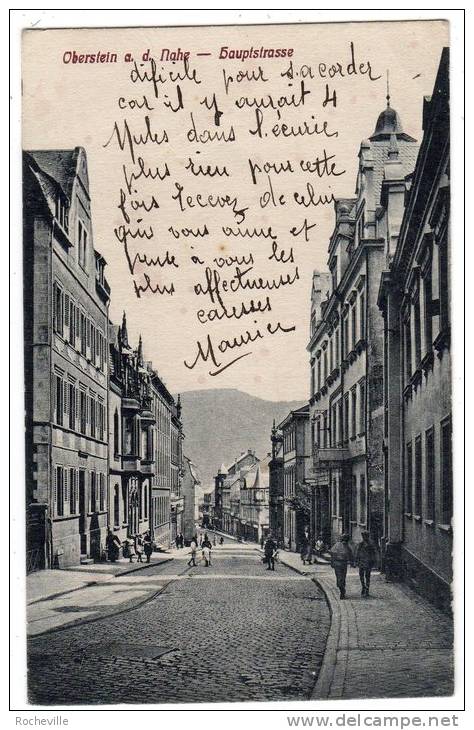 Oberstein a. d. Nahe — Hauptstrasse
difficile pour s'acorder
car il y aurait 4
Mules dans l'écurie
plus rien pour cette
fois recevez de celui
qui vous aime et
pense à vous les
plus affectueuses
caresses
Maurice
Rocheville
http://www.delcampe.net